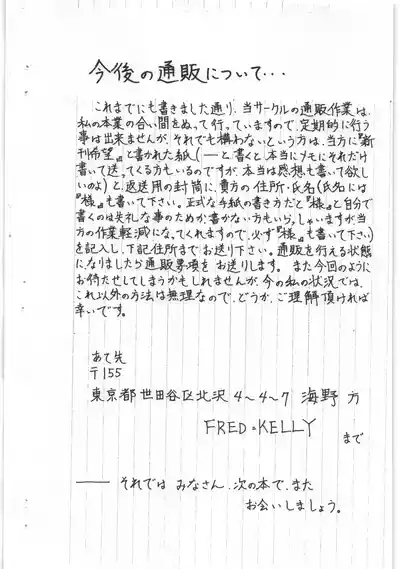 今後の通販について・・・
これまでにも書きました通り、当サークルの通販作業は、
私の本業の合い間をぬって行っていますので、定期的に行う
事は出来ませんが、それでも構わないという方は、当方に『新
刊希望』と書かれた紙(―と、書くと、本当にメモにそれだけ
書いて送ってくる方もいるのですが、本当は感想も書いて欲し
いのよ)と、返送用の封筒に、貴方の住所・氏名(氏名には
『様』も書いて下さい。正式な手紙の書き方だと『様』と自分で
書くのは失礼な事のためか、書かない方もいらっしゃいますが当
方の作業軽減になってくれますので、必ず『様』も書いて下さい)
を記入し、下記住所までお送り下さい。通販を行える状態
になりましたら通販要項をお送りします。また今回のように
お待たせしてしまうかもしれませんが、今の私の状況では、
これ以外の方法は無理なので、どうか、ご理解頂ければ
幸いです。
あて先
〒155
東京都世田谷区北沢4~4~7 海野方
FRED=KELLY
まで
―― それでは みなさん、次の本で、また
お会いしましょう。